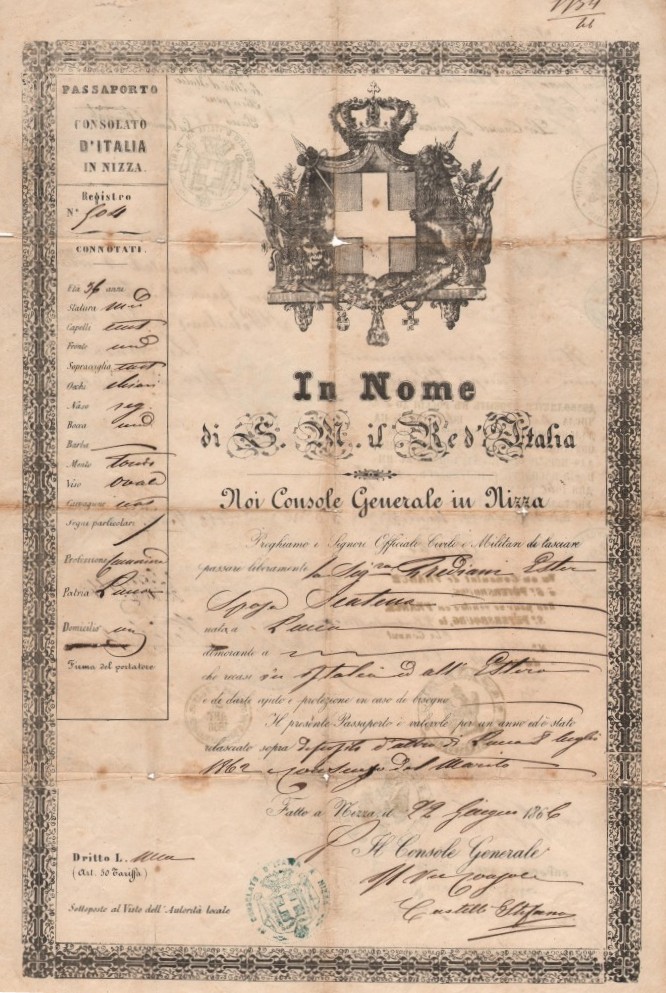 PASSAPORTO
CONSOLATO
D'ITALIA
IN NIZZA.
Registro
N° 504
CONNOTATI.
Età 36 anni
Statura
Capelli cast
Fronte
Sopracciglia cast
Occhi chiari
Naso reg
Bocca
Barba
Mento tondo
Viso ovale
Carnagione
Segni particolari
Professione
Patria Lucca
Domicilio
Firma del portatore
In Nome
di S. M. il Re d'Italia
Noi Console Generale in Nizza
Preghiamo i Signori Officiali Civili e Militari di lasciare
passare liberamente la Sig.ra Frediani Ester
Sposa Scatena
nata a Lucca
demorante a
che recasi in Italia ed all' Estero
e di darle ajuto e protezione in caso di bisogno
Il presente Passaporto è valevole per un anno ed è stato
rilasciato sopra deposito d'altro di Lucca 8 luglio
1862 e consenso del Marito
Fatto a Nizza, il 22 Giugno 1866
Il Console Generale
Dritto L.
(Art. 50 Tariffa)
Sottoposto al Visto dell'Autorità locale